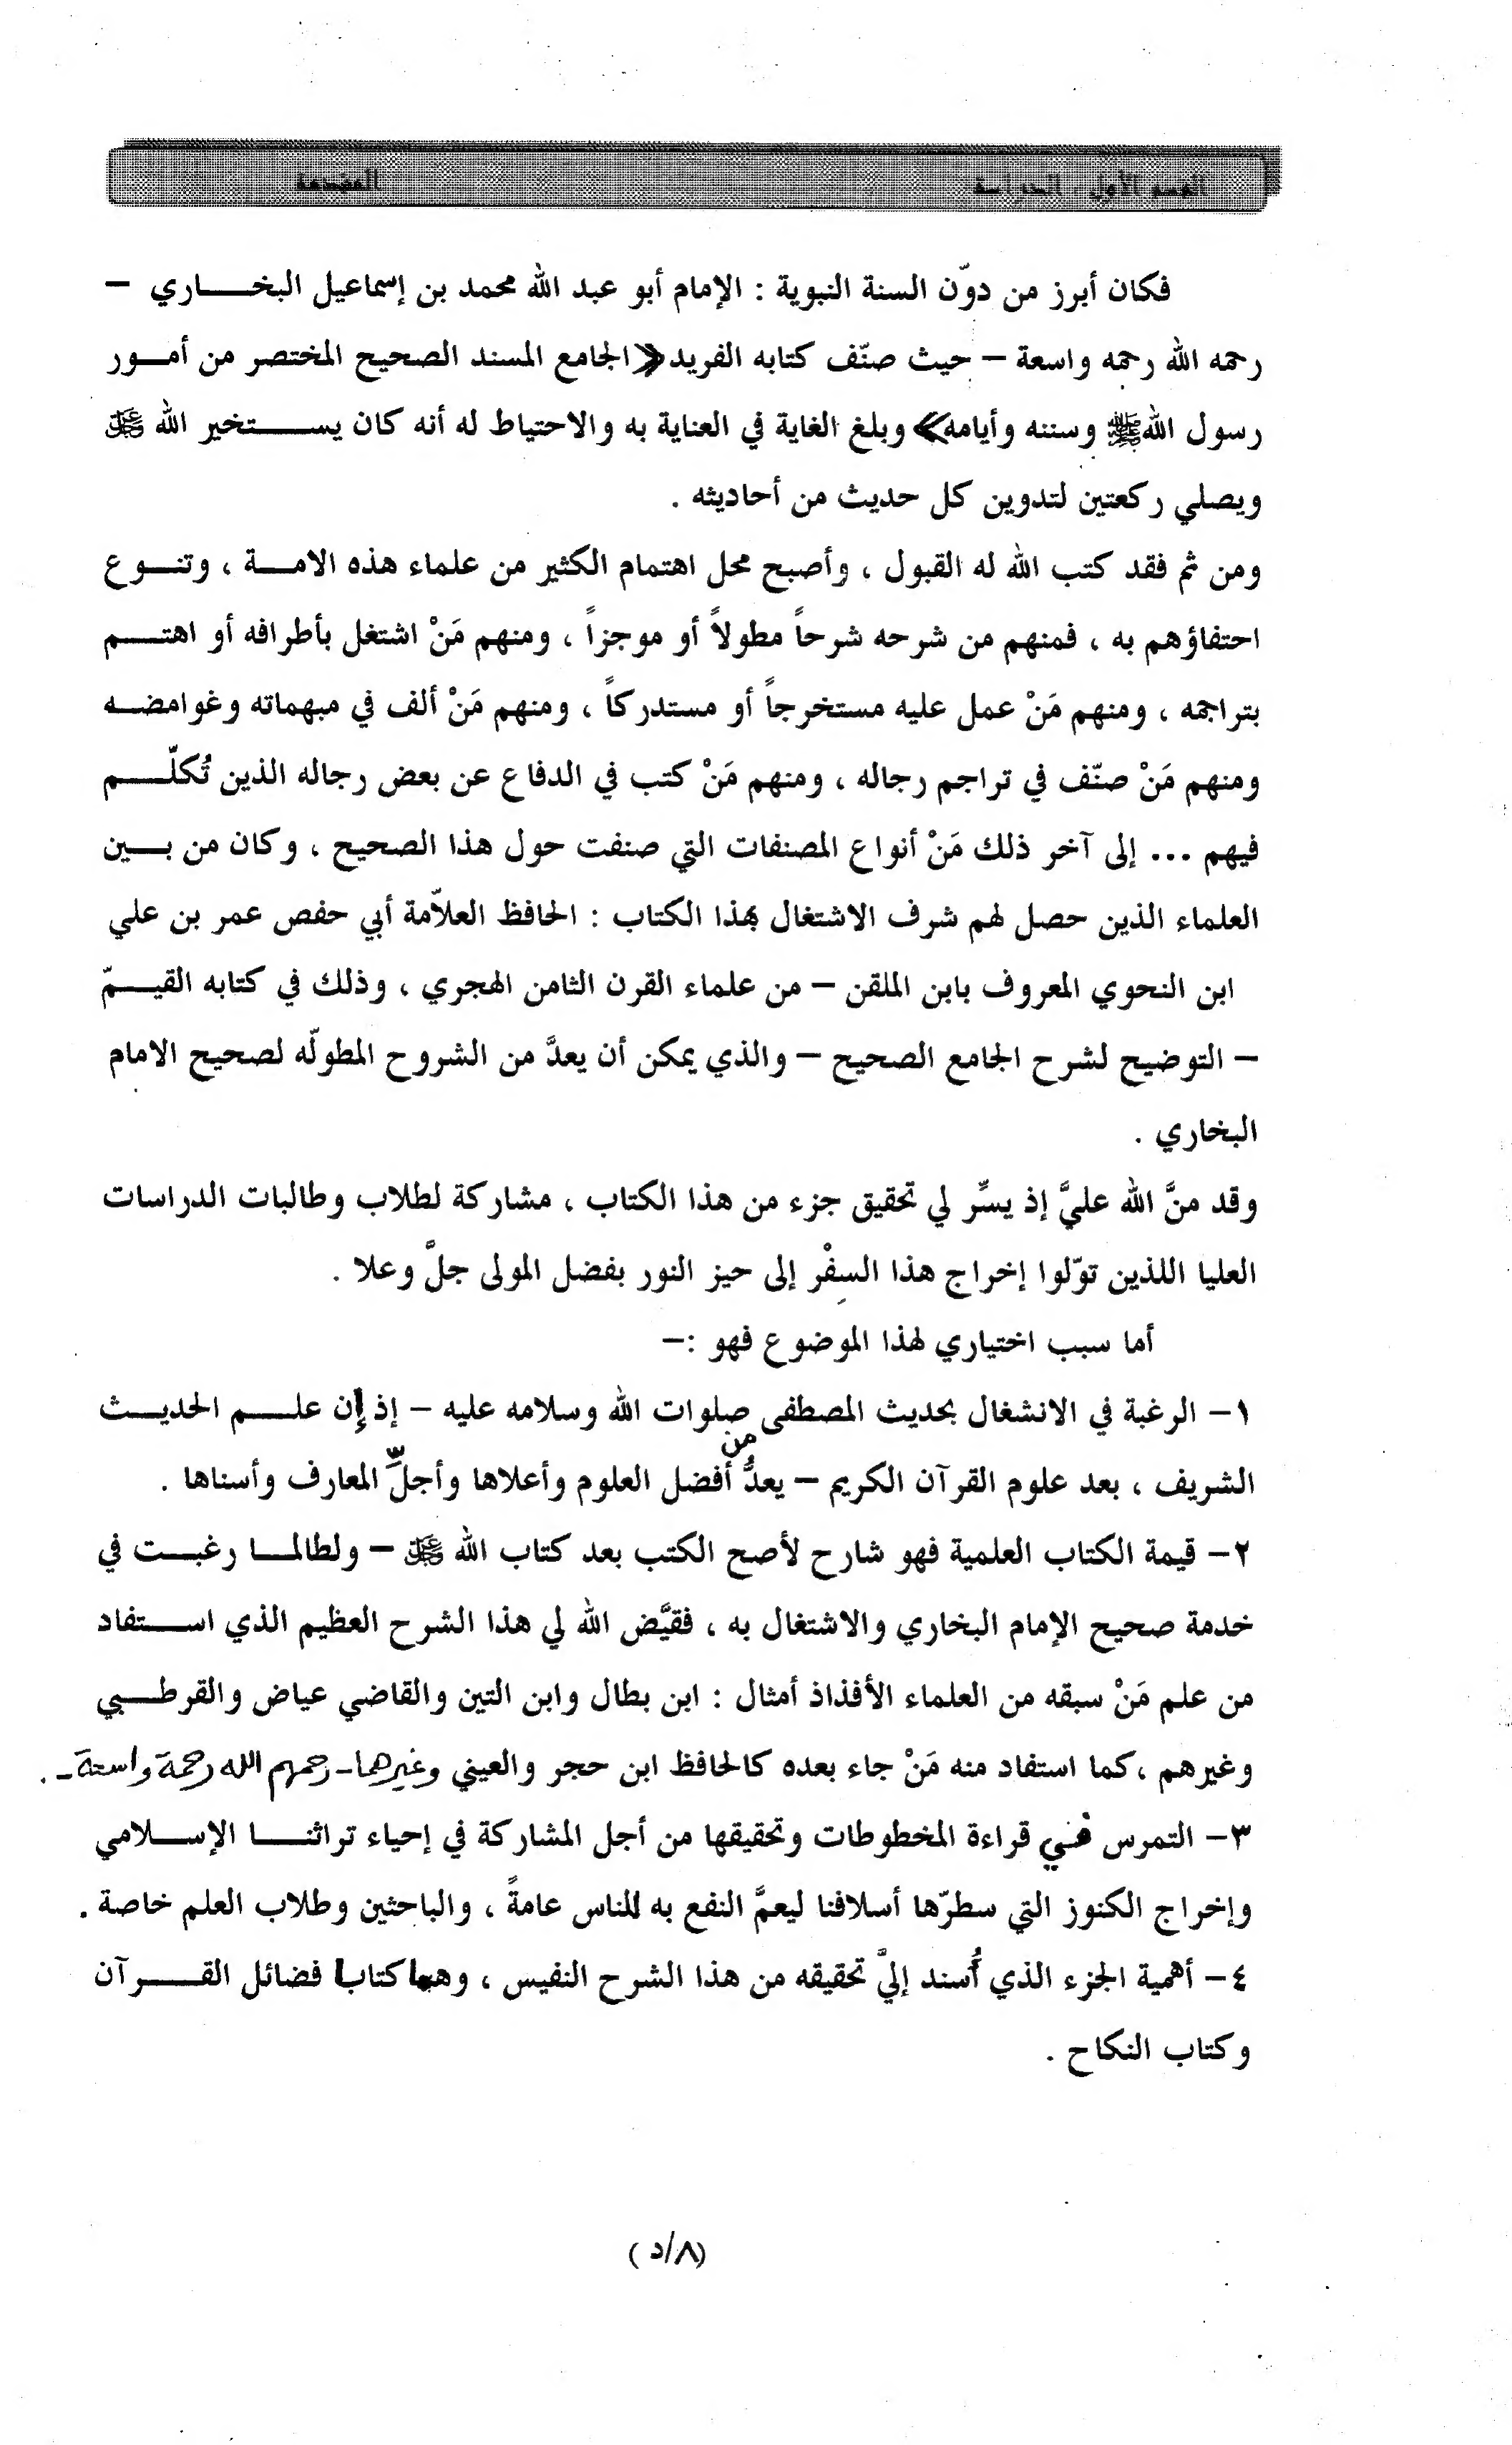 القسم الأول : الدراسة المقدمة
فكان أبرز من دوّن السنة النبوية : الإمام أبو عبد الله محمد بن إسماعيل البخاري –
رحمه الله رحمه واسعة – حيث صنّف كتابه الفريد《الجامع المسند الصحيح المختصر من أمور
رسول الله ﷺ وسننه وأيامه》وبلغ الغاية في العناية به والاحتياط له أنه كان يستخير الله ﷻ
ويصلي ركعتين لتدوين كل حديث من أحاديثه .
ومن ثم فقد كتب الله له القبول ، وأصبح محل اهتمام الكثير من علماء هذه الامة ، وتنوع
احتفاؤهم به ، فمنهم من شرحه شرحاً مطولاً أو موجزاً ، ومنهم مَنْ اشتغل بأطرافه أو اهتم
بتراجمه ، ومنهم مَنْ عمل عليه مستخرجاً أو مستدركاً ، ومنهم مَنْ ألف في مبهماته وغوامضه
ومنهم مَنْ صنّف في تراجم رجاله ، ومنهم مَنْ كتب في الدفاع عن بعض رجاله الذين تُكلّم
فيهم ... إلى آخر ذلك مَنْ أنواع المصنفات التي صنفت حول هذا الصحيح ، وكان من بين
العلماء الذين حصل لهم شرف الاشتغال بهذا الكتاب : الحافظ العلاّمة أبي حفص عمر بن علي
ابن النحوي المعروف بابن الملقن – من علماء القرن الثامن الهجري ، وذلك في كتابه القيمّ
– التوضيح لشرح الجامع الصحيح – والذي يمكن أن يعدَّ من الشروح المطولّه لصحيح الامام
البخاري .
وقد منَّ الله عليَّ إذ يسَّر لي تحقيق جزء من هذا الكتاب ، مشاركة لطلاب وطالبات الدراسات
العليا اللذين توّلوا إخراج هذا السِفْر إلى حيز النور بفضل المولى جلَّ وعلا .
أما سبب اختياري لهذا الموضوع فهو :–
١– الرغبة في الانشغال بحديث المصطفى صلوات الله وسلامه عليه – إذ إن علم الحديث
الشريف ، بعد علوم القرآن الكريم – يعدُّ من أفضل العلوم وأعلاها وأجلِّ المعارف وأسناها .
٢– قيمة الكتاب العلمية فهو شارح لأصح الكتب بعد كتاب الله ﷻ – ولطالما رغبت في
خدمة صحيح الإمام البخاري والاشتغال به ، فقيَّض الله لي هذا الشرح العظيم الذي استفاد
من علم مَنْ سبقه من العلماء الأفذاذ أمثال : ابن بطال وابن التين والقاضي عياض والقرطبي
وغيرهم ،كما استفاد منه مَنْ جاء بعده كالحافظ ابن حجر والعيني وغيرهما- رحمهم الله رحمة واسعة- .
٣– التمرس في قراءة المخطوطات وتحقيقها من أجل المشاركة في إحياء تراثنا الإسلامي
وإخراج الكنوز التي سطرّها أسلافنا ليعمَّ النفع به للناس عامةً ، والباحثين وطلاب العلم خاصة .
٤– أهمية الجزء الذي أُسند إليَّ تحقيقه من هذا الشرح النفيس ، وهما كتابا فضائل القرآن
وكتاب النكاح .
(٨/د)